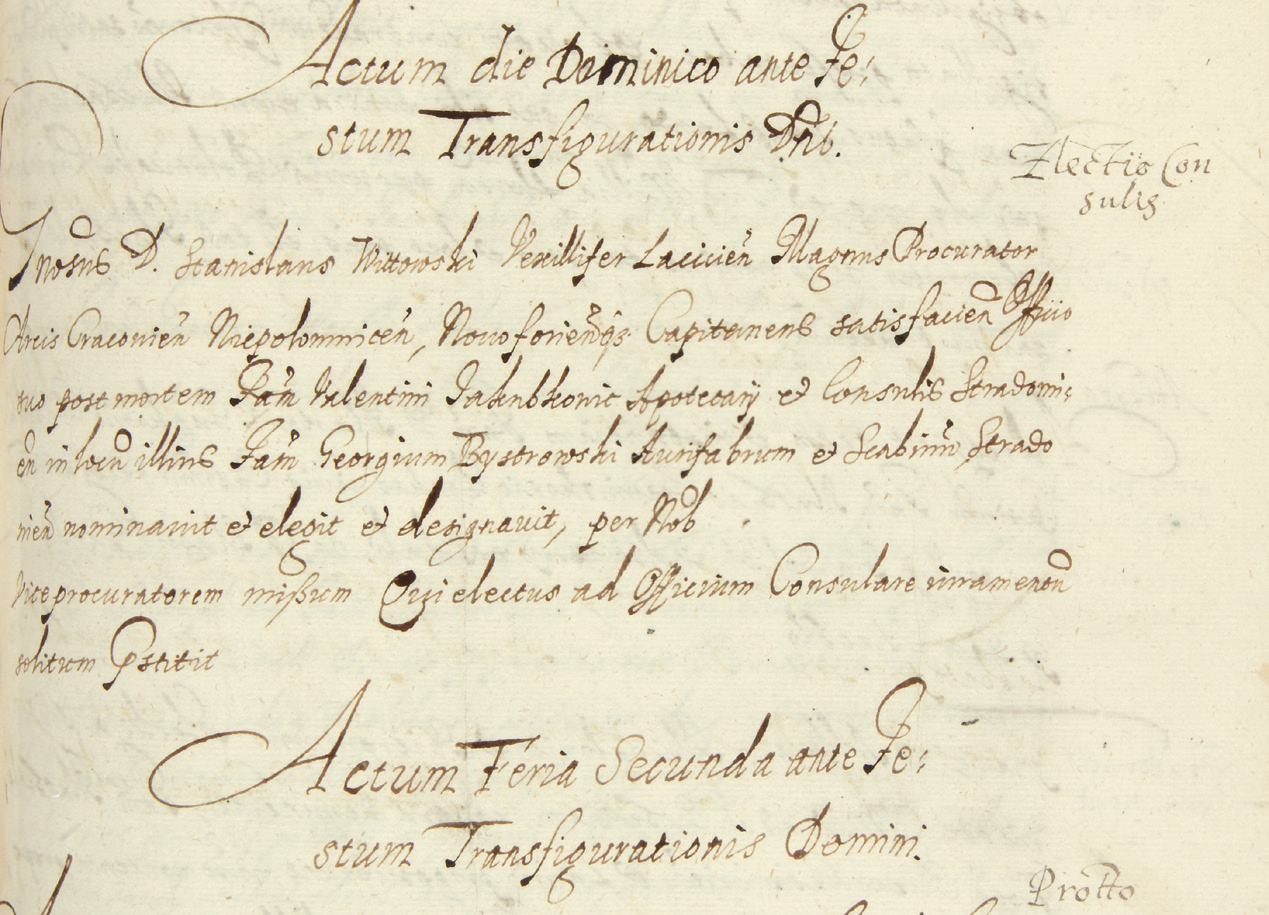 Actum die Dominico ante Fe:
stum Transfigurationis Dni.
Electio Con
sulis
Gnosus D. Stanislaus Wittowski Vexillifer Lacicien Magnus Procurator
Arcis Cracovien Niepolomnicen, Novoforienqs Capitaneus satisfacien Offiio
suo post mortem Fam Valentini Jakubkowic Apotecarij et Consulis Stradomi:
en in locu illius Fam Georgium Bystrowski Aurifabrum et Scabinu Strado
mien nominavit et elegit et designavit, per Nob
Viceprocuratorem missum Qui electus ad Officium Consulare iuramentu
solitum pstitit
Actum Feria Secunda ante Fe:
stum Transfigurationis Domini.
Protto